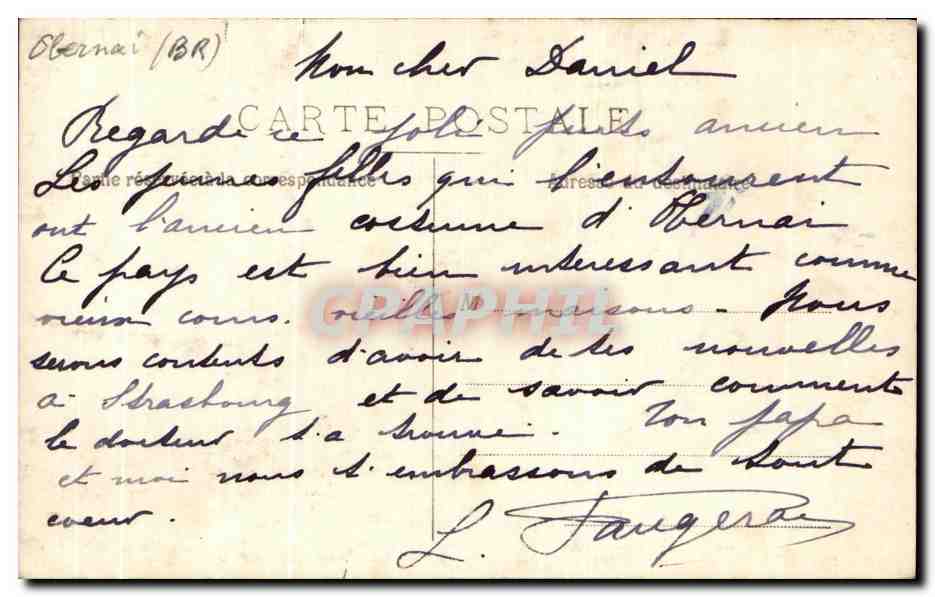 Obernai (BR)
Mon cher Daniel
CARTE POSTALE
Regarde ce joli puits ancien
Partie réservée à la correspondance
Adresse du destinataire
Les jeunes filles qui l'entourent
ont l'ancien costume d'Obernai
Ce pays est bien intéressant comme
vieux coins. vieilles maisons. Nous
M
CPAPHIL
serons contents d'avoir de tes nouvelles
à Strasbourg et de savoir comment
le docteur t'a trouvé. Ton papa
et moi nous t'embrassons de tout
coeur.
L.